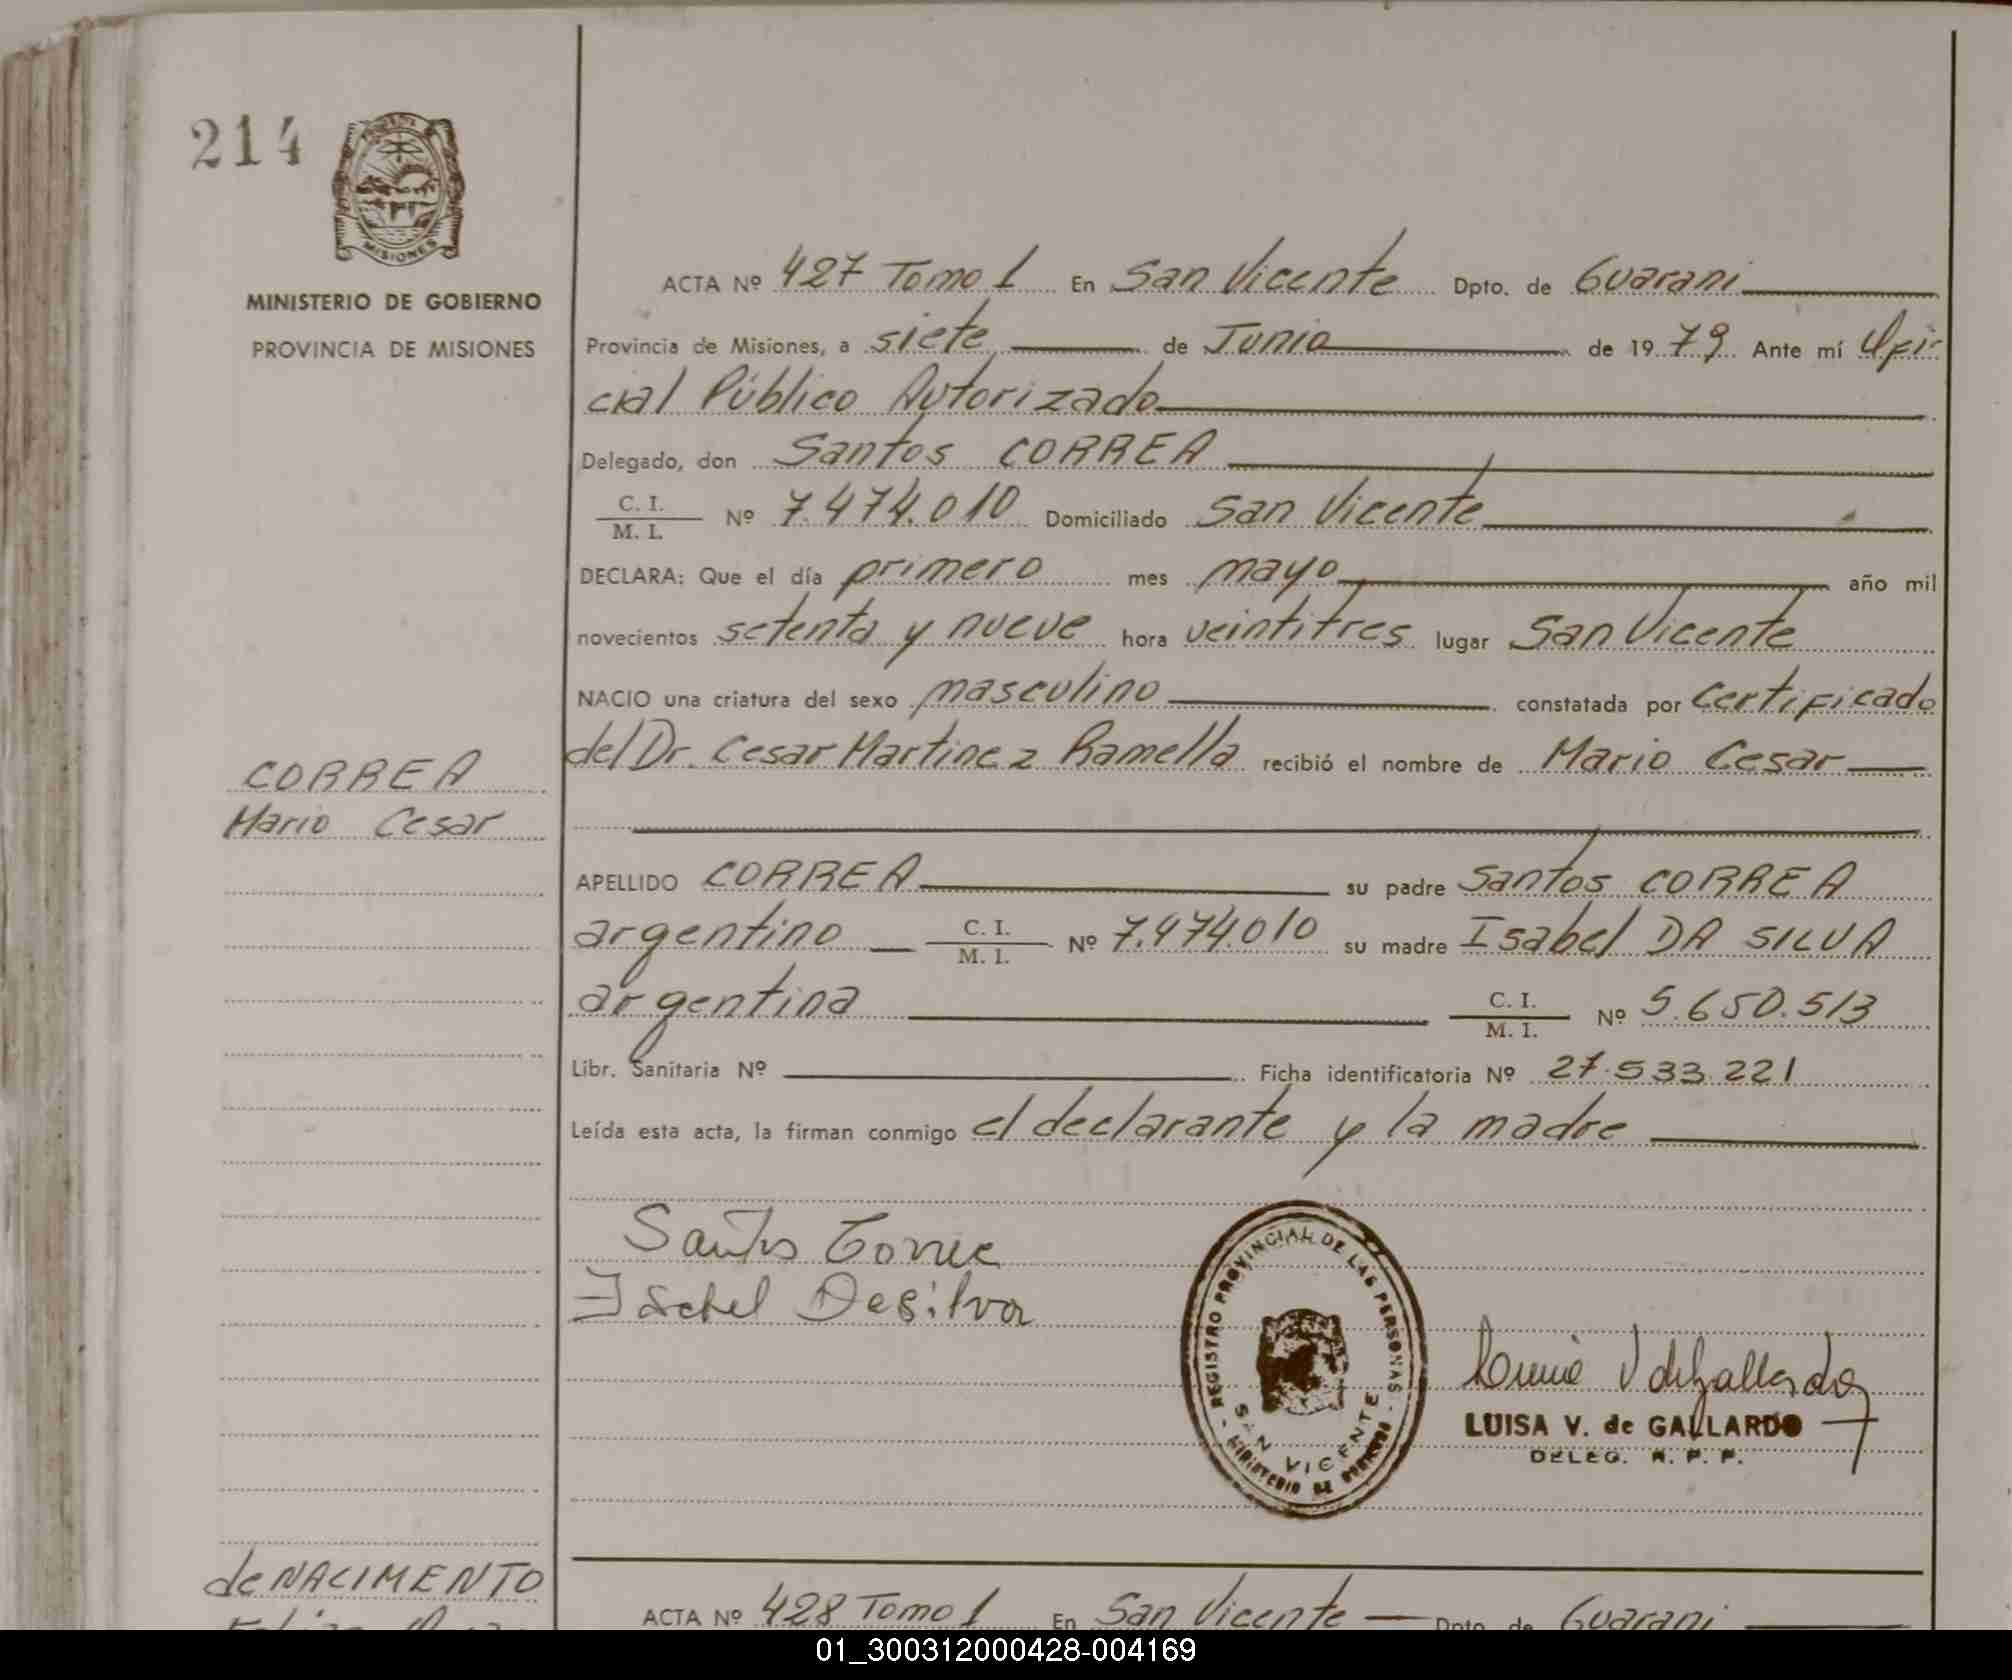 214
MISIONES
MINISTERIO DE GOBIERNO
PROVINCIA DE MISIONES
ACTA Nº 427 Tomo 1 En San Vicente Dpto. de Guarani
Provincia de Misiones, a siete de Junio de 1979 Ante mí Ofi-
cial Público Autorizado
Delegado, don Santos CORREA
C. I.
M. I. Nº 7.474.010 Domiciliado San Vicente
DECLARA: Que el día primero mes mayo año mil
novecientos setenta y nueve hora veintitres lugar San Vicente
NACIO una criatura del sexo masculino constatada por Certificado
del Dr. Cesar Martinez Ramella recibió el nombre de Mario Cesar
CORREA
Mario Cesar
APELLIDO CORREA su padre Santos CORREA
argentino C. I.
M. I. Nº 7.474.010 su madre Isabel DA SILVA
argentina C. I.
M. I. Nº 5.650.513
Libr. Sanitaria Nº Ficha identificatoria Nº 27.533.221
Leída esta acta, la firman conmigo el declarante y la madre
Santos Correa
Isabel Dasilva
REGISTRO PROVINCIAL DE LAS PERSONAS
SAN VICENTE
MINISTERIO DE GOBIERNO
LUISA V. de GALLARDO
DELEG. R. P. P.
de NACIMENTO
ACTA Nº 428 Tomo 1 En San Vicente Dpto. de Guarani
01_300312000428-004169